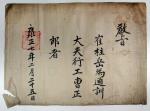 敎旨
崔柱岳爲通訓
大夫行工曹正
郎者
雍正七年二月二十五日